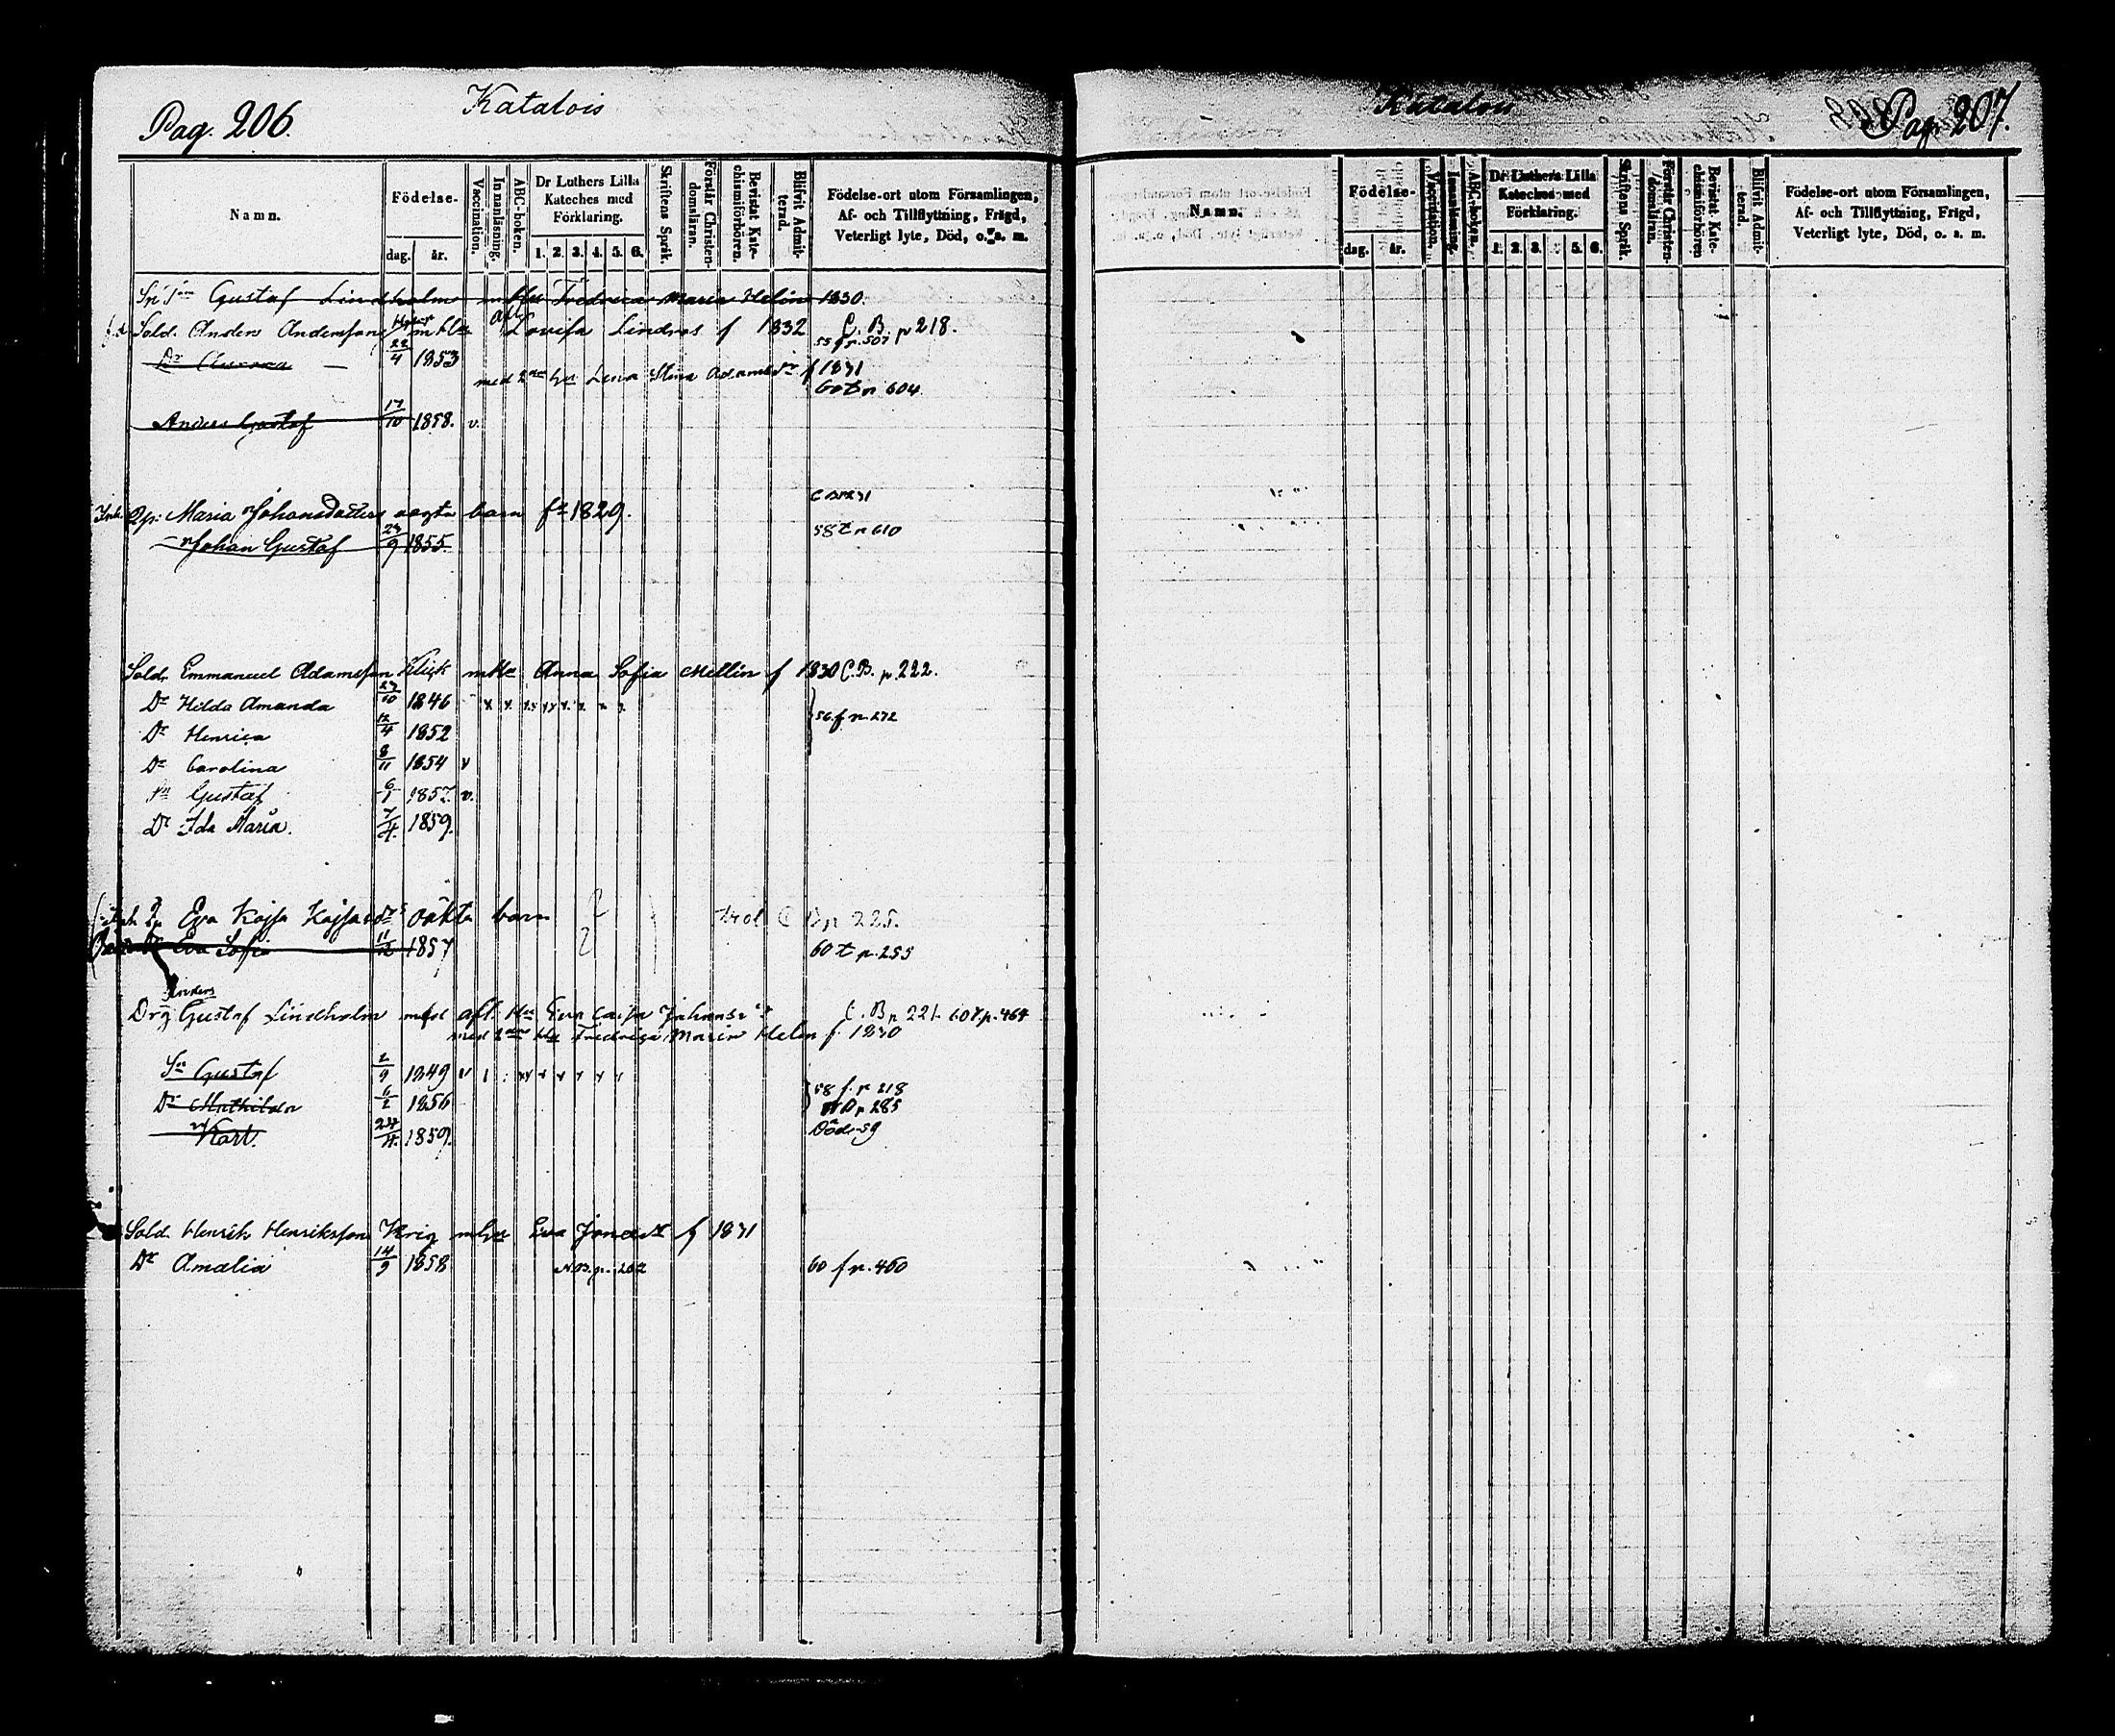 Pag. 206.
Katalois
Namn.
Födelse-
dag. år.
Vaccination.
Innanläsning.
ABC-boken.
Dr Luthers Lilla Kateches med Förklaring.
1. 2. 3. 4. 5. 6.
Skriftens Språk.
Förstår Christendomsläran.
Bevistat Katechismiförhören.
Blifvit Admitterad.
Födelse-ort utom Församlingen,
Af- och Tillflyttning, Frägd,
Veterligt lyte, Död, o. s. m.
Gustaf Lindholm m hu Fredrica Maria Helin 1830.
Sold. Anders Andersson m hu Lovisa Lindros f 1832 C. B. p 218.
Dr Aurora 22/4 1853 55 f p. 507
med 2 hu Lena Stina Adamsdr f 1831
60 t p 604
Anders Gustaf 17/10 1858. v.
Maria Johansdotters oägta barn f 1829.
Johan Gustaf 23/9 1855. 58 t p 610
Sold. Emmanuel Adamsson Klick m hu Anna Sofia Mellin f 1830 C.B. p. 222.
Dr Hilda Amanda 23/10 1846
Dr Henrica 12/4 1852 56 f p. 272
Dr Carolina 8/11 1854 v
Sn Gustaf 6/1 1857. v.
Dr Ida Maria. 7/4. 1859.
Eva Kajsa Kajsasdrs oäkta barn p 225.
Eva Sofia 11/12 1857 60 t p. 255
Anders
Drg Gustaf Lindholm med afl. Hu Eva Caisa Johansdr C. B p 221. 60 t p. 464
med 2 hu Fredrica Maria Helen f. 1830
Sn Gustaf 2/9 1849 v
58 f. p 218
Dr Mathilda 6/2 1856
p 285
Karl. 24/4. 1859. Död 59
Sold. Henrik Henriksson Krig m hu Eva Jonasdr f 1831
Dr Amalia 14/9 1858 N.B. p. 202 60 f p. 460
Katalois
Pag. 207.
Namn.
Födelse-
dag. år.
Vaccination.
Innanläsning.
ABC-boken.
Dr Luthers Lilla Kateches med Förklaring.
1. 2. 3. 5. 6.
Skriftens Språk.
Förstår Christendomsläran.
Bevistat Katechismiförhören
Blifvit Admitterad.
Födelse-ort utom Församlingen,
Af- och Tillflyttning, Frigd,
Veterligt lyte, Död, o. s. m.